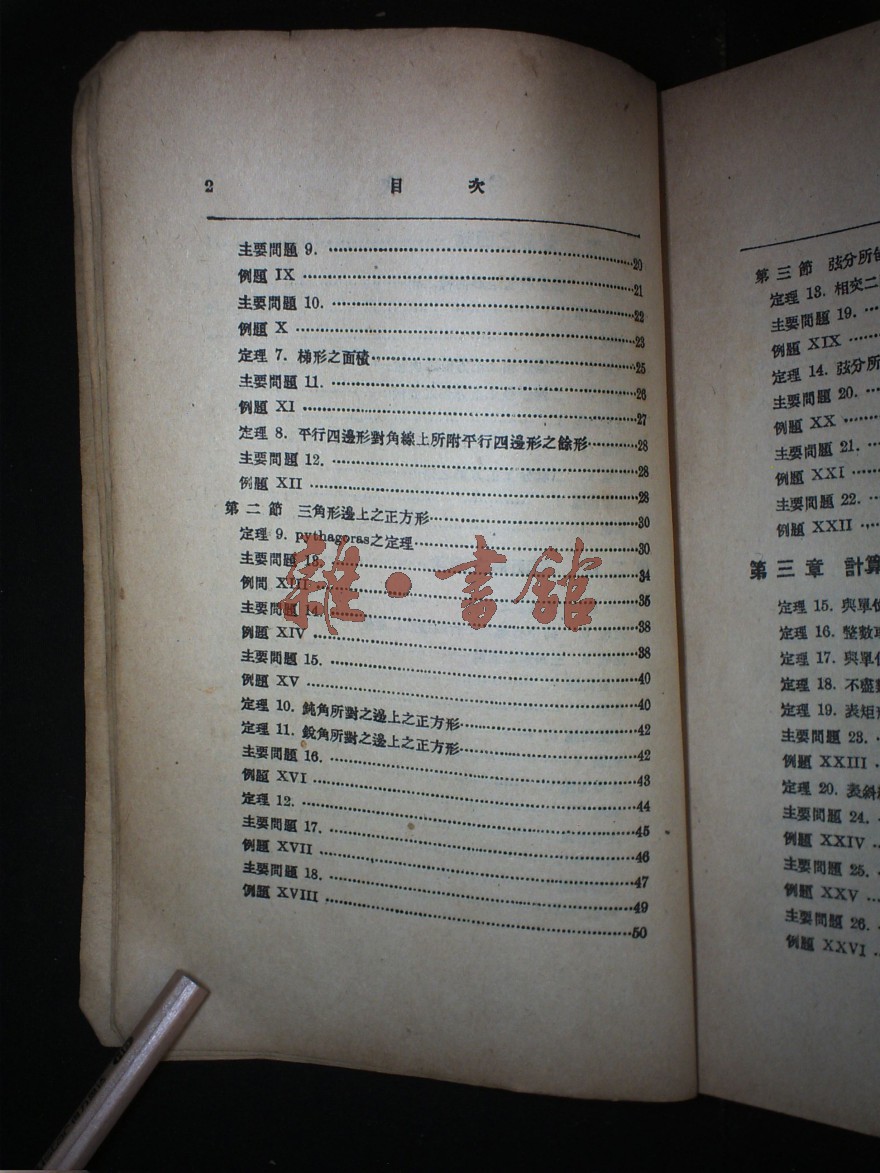 2 目 次
主要問題 9. ………20
例題 IX ………21
主要問題 10. ………22
例題 X ………23
定理 7. 梯形之面積………25
主要問題 11. ………26
例題 XI ………27
定理 8. 平行四邊形對角線上所附平行四邊形之餘形………28
主要問題 12. ………28
例題 XII ………28
第二節 三角形邊上之正方形………30
定理 9. pythagoras之定理………30
主要問題 13. ………34
例問 XIII ………35
主要問題 14. ………38
例題 XIV ………38
主要問題 15. ………40
例題 XV ………40
定理 10. 鈍角所對之邊上之正方形………42
定理 11. 銳角所對之邊上之正方形………42
主要問題 16. ………43
例題 XVI ………44
定理 12. ………45
主要問題 17. ………46
例題 XVII ………47
主要問題 18. ………49
例題 XVIII ………50
雜·書館
第三節 弦分所
定理 13. 相交二
主要問題 19. …
例題 XIX …
定理 14. 弦分所
主要問題 20. …
例題 XX …
主要問題 21. …
例題 XXI …
主要問題 22. …
例題 XXII …
第三章 計算
定理 15. 與單位
定理 16. 整數
定理 17. 與單位
定理 18. 不盡
定理 19. 表矩
主要問題 23. …
例題 XXIII …
定理 20. 表斜
主要問題 24. …
例題 XXIV …
主要問題 25. …
例題 XXV …
主要問題 26. …
例題 XXVI …